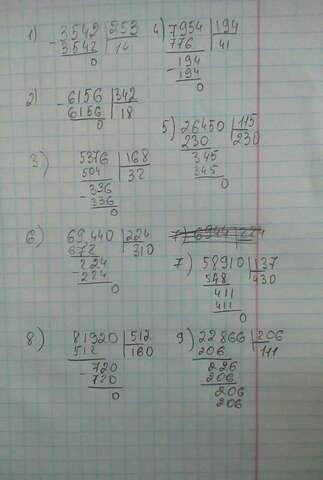 1) - 3542 | 253
3542 | 14
0
4) 7954 | 194
776 | 41
- 194
194
0
2) - 6156 | 342
6156 | 18
0
5) 26450 | 115
230 | 230
345
345
0
3) 5376 | 168
504 | 32
- 336
336
0
6) 69440 | 224
672 | 310
- 224
224
0
7) 58910 | 137
548 | 430
411
411
0
8) 81920 | 512
512 | 160
- 720
720
0
9) 22866 | 206
206 | 111
226
206
206
206